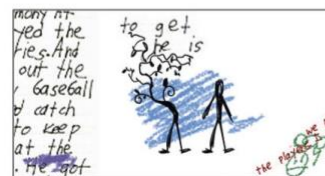 mony at
yed the
ries. And
out the
baseball
d catch
to keep
at the
. He got
to get
he is
the players we